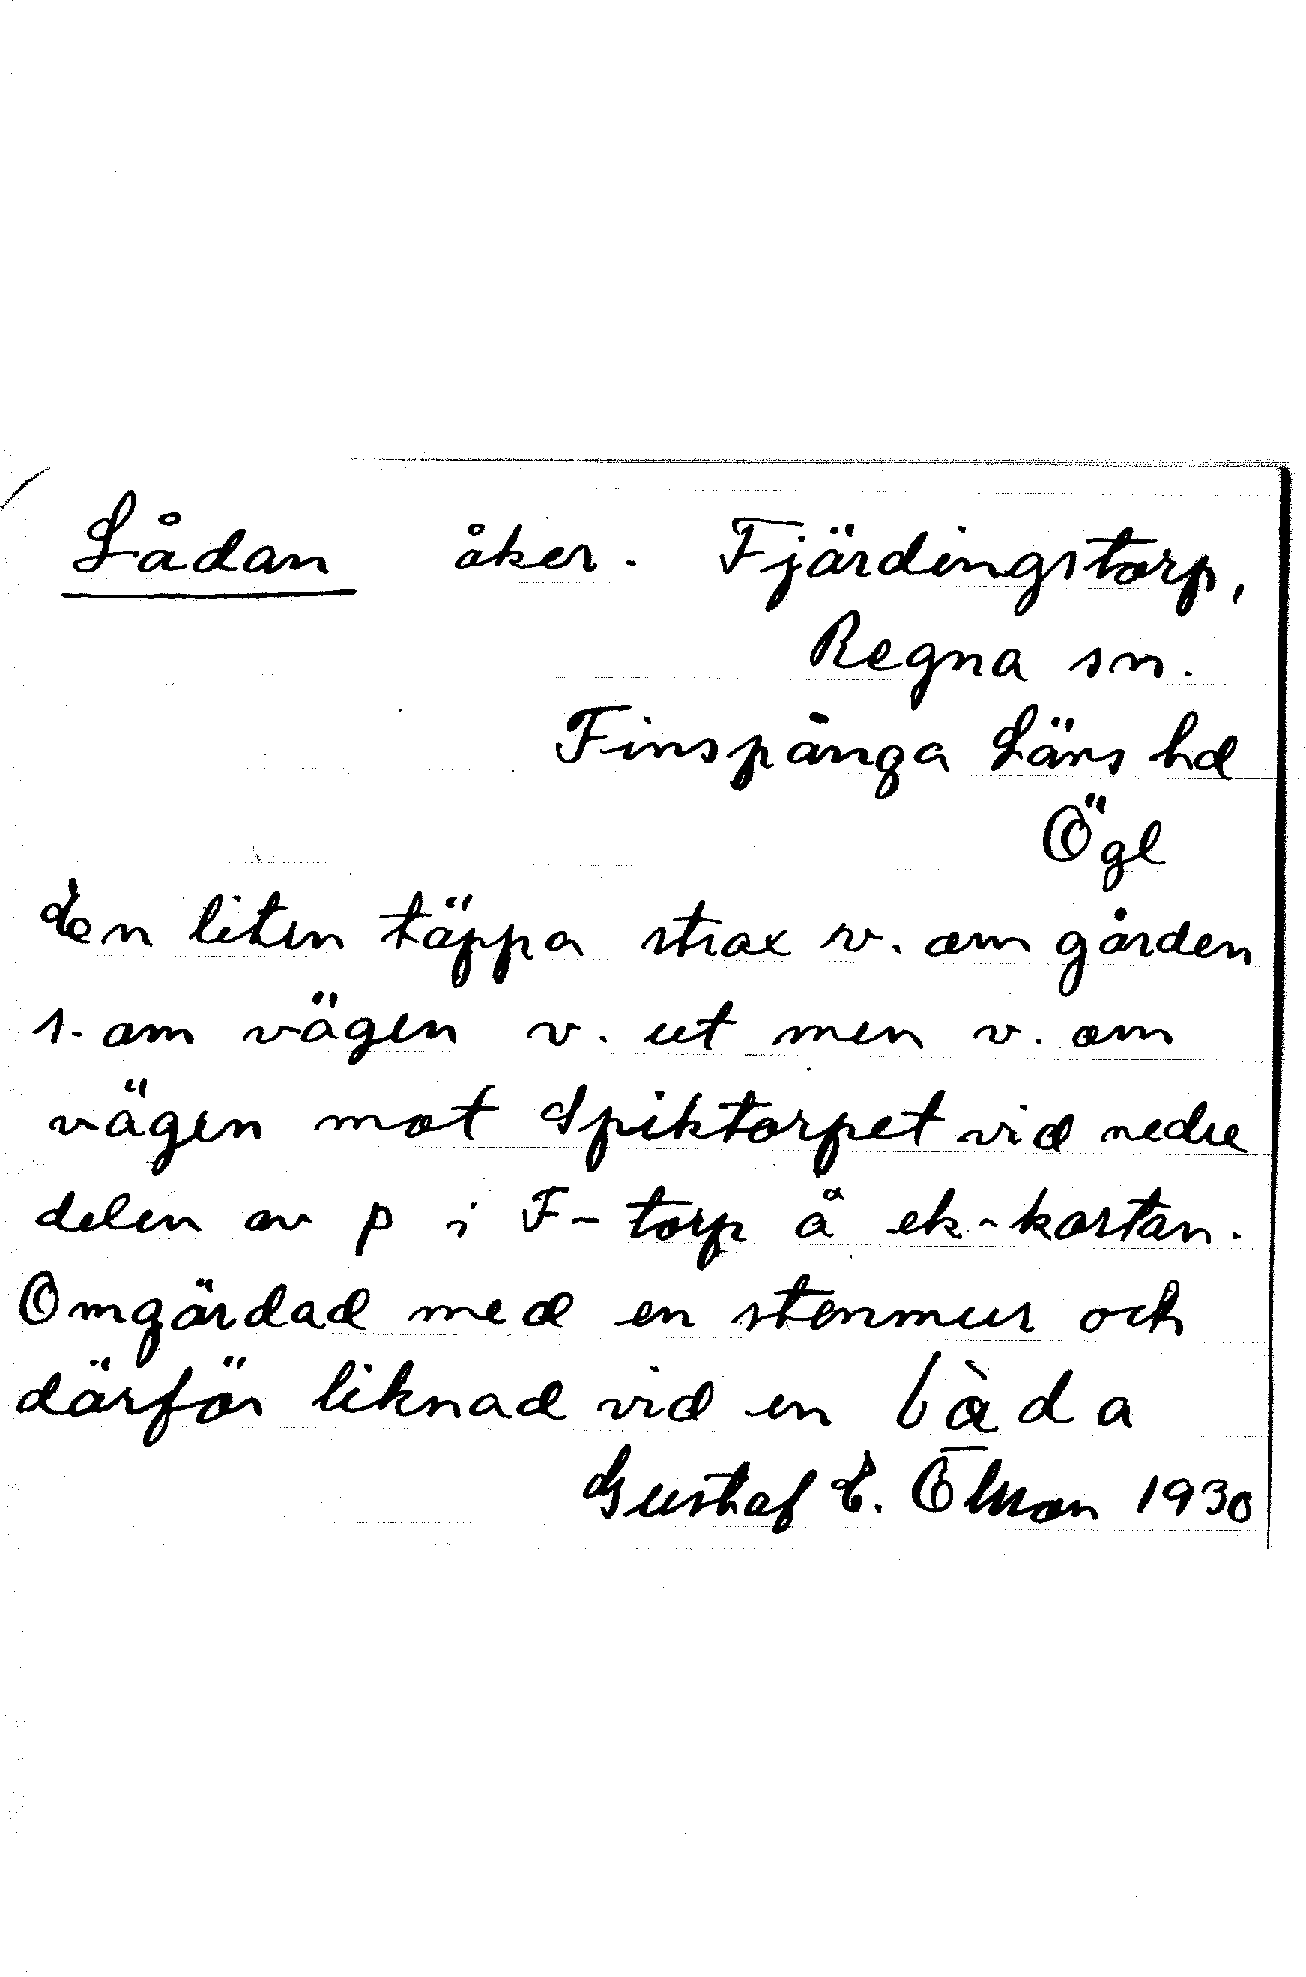 Lådan åker. Fjärdingstorp,
Regna sn.
Finspånga Läns hd
Ögl
En liten täppa strax v. om gården
s. om vägen v. ut men v. om
vägen mot Spiktorpet vid nedre
delen av p i F-torp å ek-kartan.
Omgärdad med en stenmur och
därför liknad vid en
Gustaf E. 1930